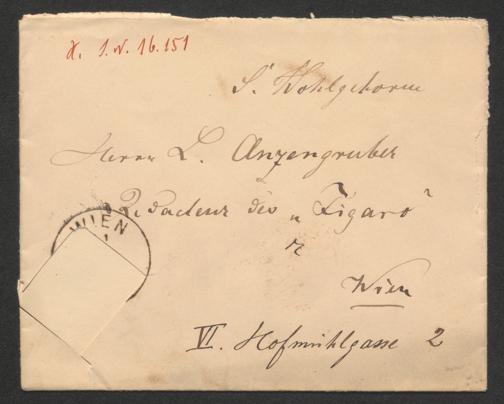 H. I.N. 16.151
Sr Wohlgeboren
Herrn L. Anzengruber
Redacteur des „Figaro“
Wien
VI. Hofmühlgasse 2
WIEN
1